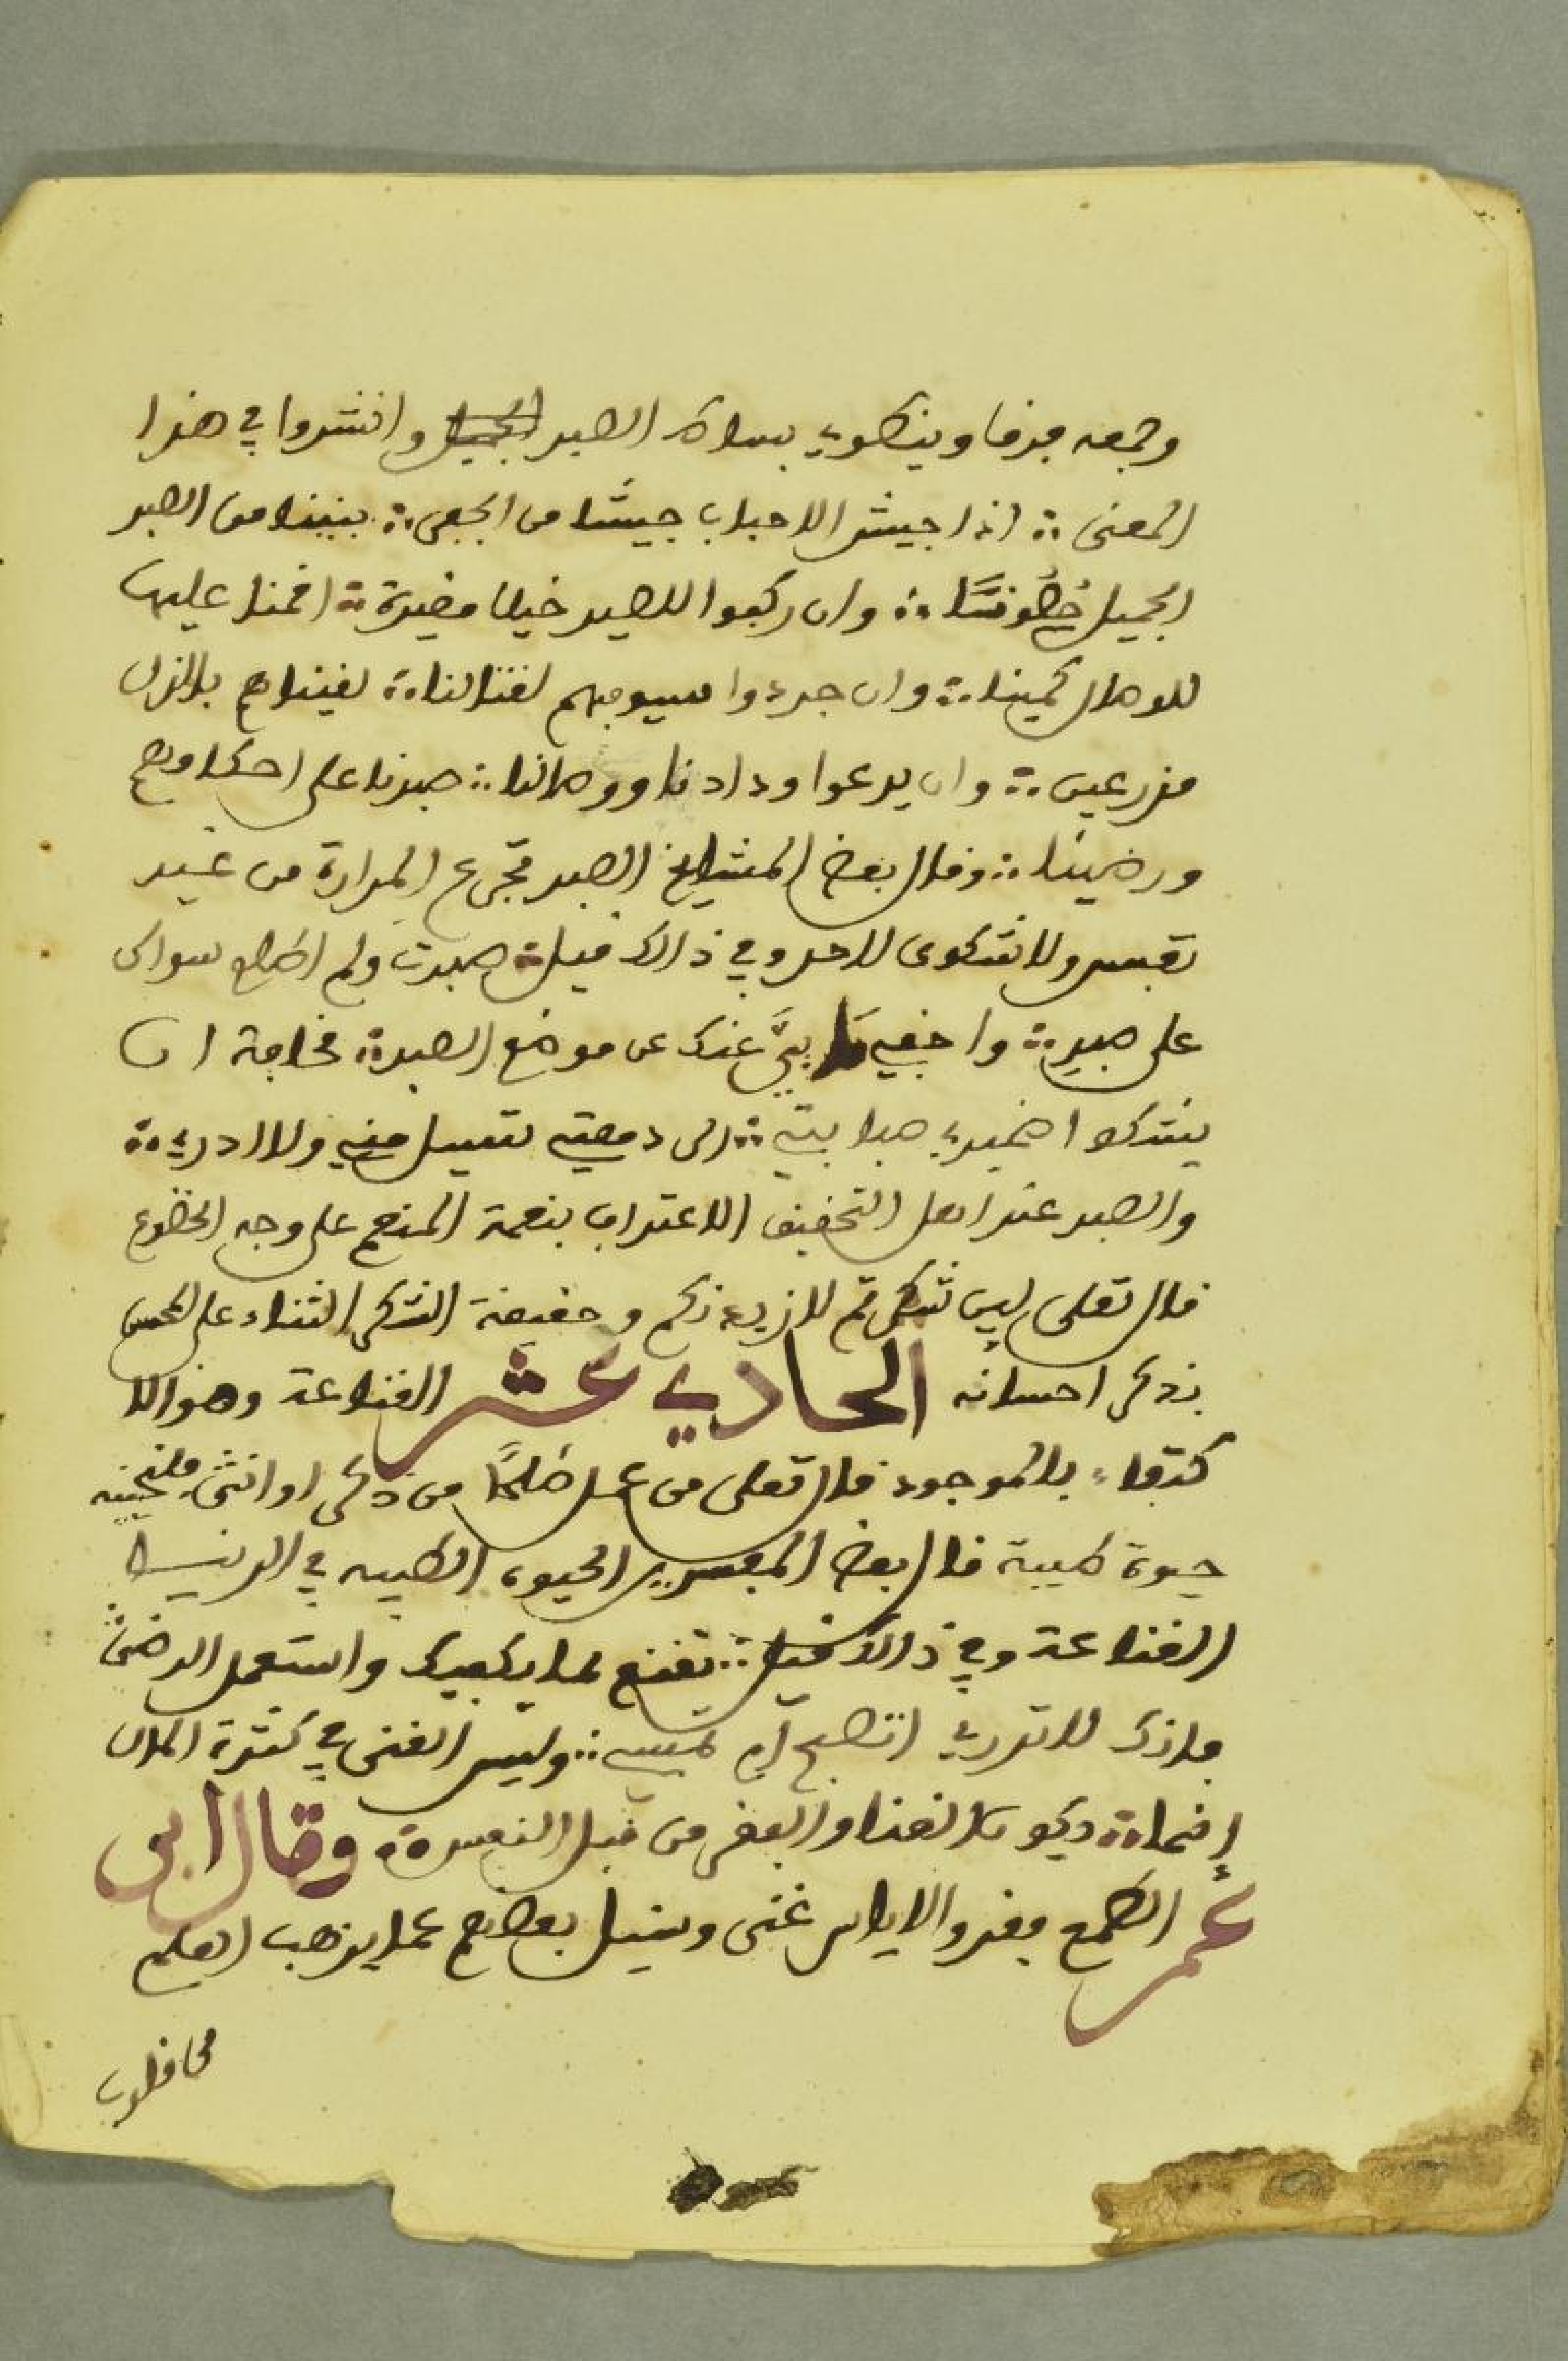 وجمعه فرفا وينطوي بساط الصبر الجميل وانشدوا في هذا
المعنى ∴ اذا جيش الاحباب جيشا من الجفى ∴ بنينا من الصبر
الجميل حصونا ∴ وان ركبوا للصبر خيلا مغيرة ∴ اقمنا عليها
للوصال كمينا ∴ وان جردوا سيوفهم لقتالنا ∴ لقيناهم بالذل
مدرعين ∴ وان يدعوا ودادنا ووصالنا ∴ صبرنا على احكامهم
ورضينا ∴ وقال بعض المشايخ الصبر تجرع المرارة من غير
تعبس ولا شكوى لاحد وفي ذالك قيل ∴ صبرت ولم اطلع سواك
على صبر ∴ واخفيت ما بي عنك عن موضع الصبر ∴ مخافة ان
يشكوا ضمير صبابتي ∴ الى دمعتي تسيل منه ولا ادري ∴
والصبر عند اهل التحقيق الاعتراف بنعمة المنعم على وجه الخضوع
قال تعلى لين شكرتم لازيدنكم وحقيقة الشكر الثناء على المحسن
بذكر احسانه الحادي عشر القناعة وهو الا
كتفاء بالموجود قال تعلى من عمل صلحا من ذكر او انثى فلنحيينه
حيوة طيبة قال بعض المفسرين الحيوة الطيبه في الدنيا
القناعة وفي ذالك قيل ∴ تقنع بما يكفيك واستعمل الرضى
فانك لا تدري اتصبح ام تمسي ∴ وليس الغنى في كثرة المال
إنما ∴ يكون الغنا والفقر من قبل النفس ∴ وقال ابى
عمر الطمع فقر والاياس غنى وقيل لبعضهم عما يذهب العلم
من قلوب